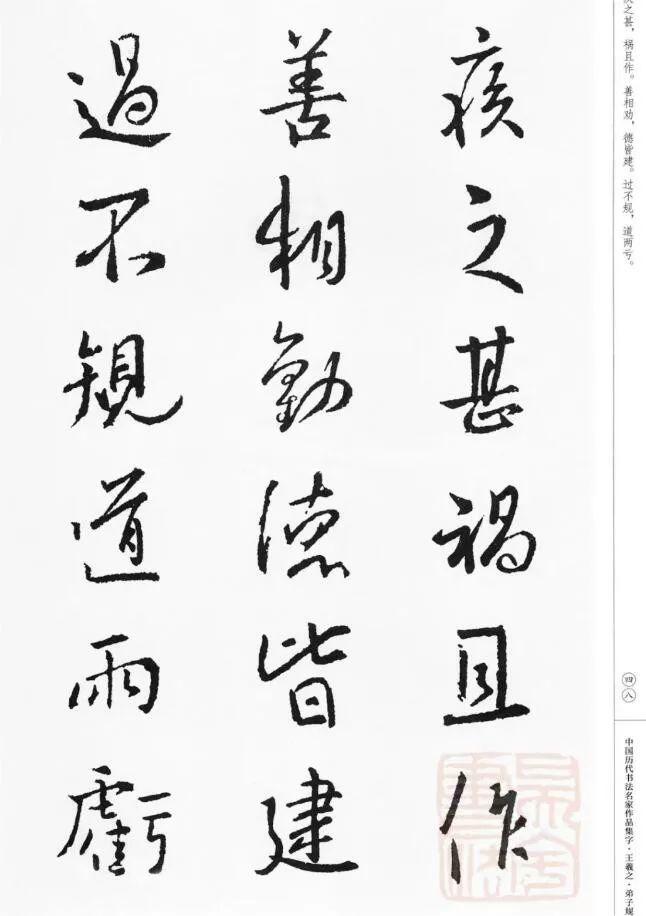 疾之甚禍且作
善相勸德皆建
過不規道兩虧
之甚，祸且作。善相劝，德皆建。过不规，道两亏。
四八
中国历代书法名家作品集字·王羲之·弟子规